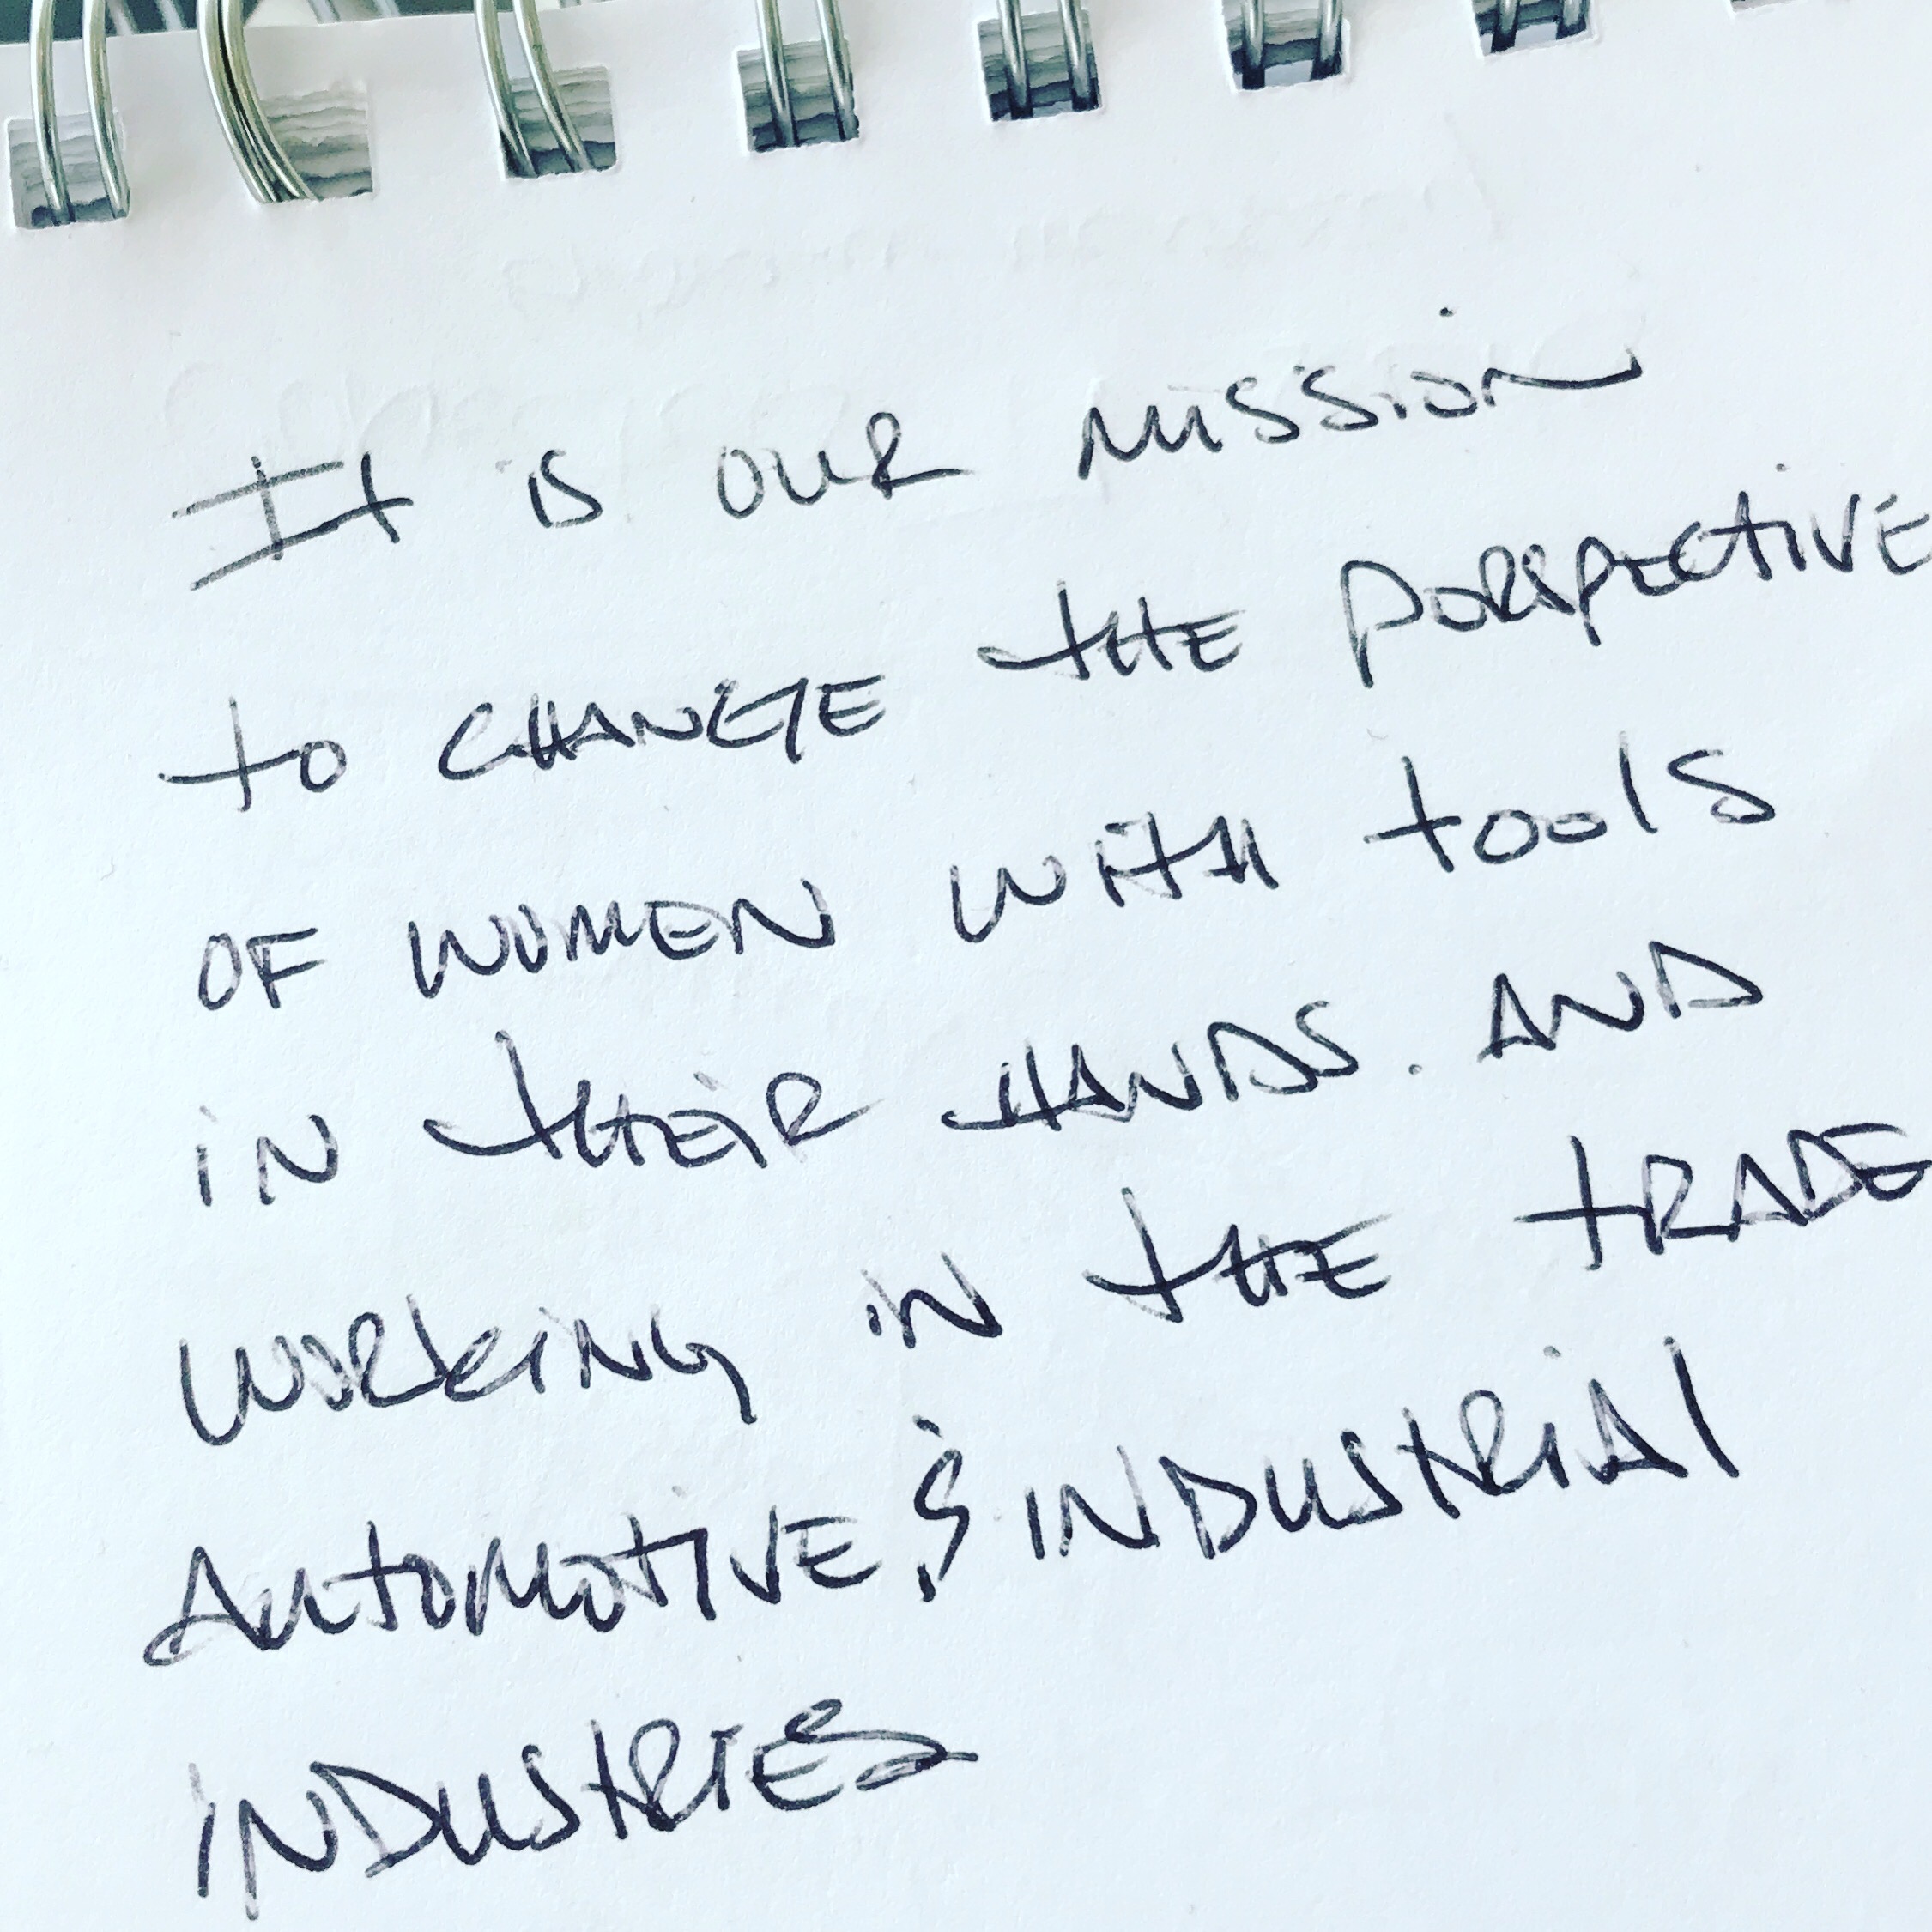 It is OUR MISSION
to CHANGE tHE PERSPECTIVE
OF WOMEN WITH tools
IN tHEIR HANDS. AND
WORKING IN tHE tRADE
AUTOMOTIVE & INDUSTRIAL
INDUSTRIES